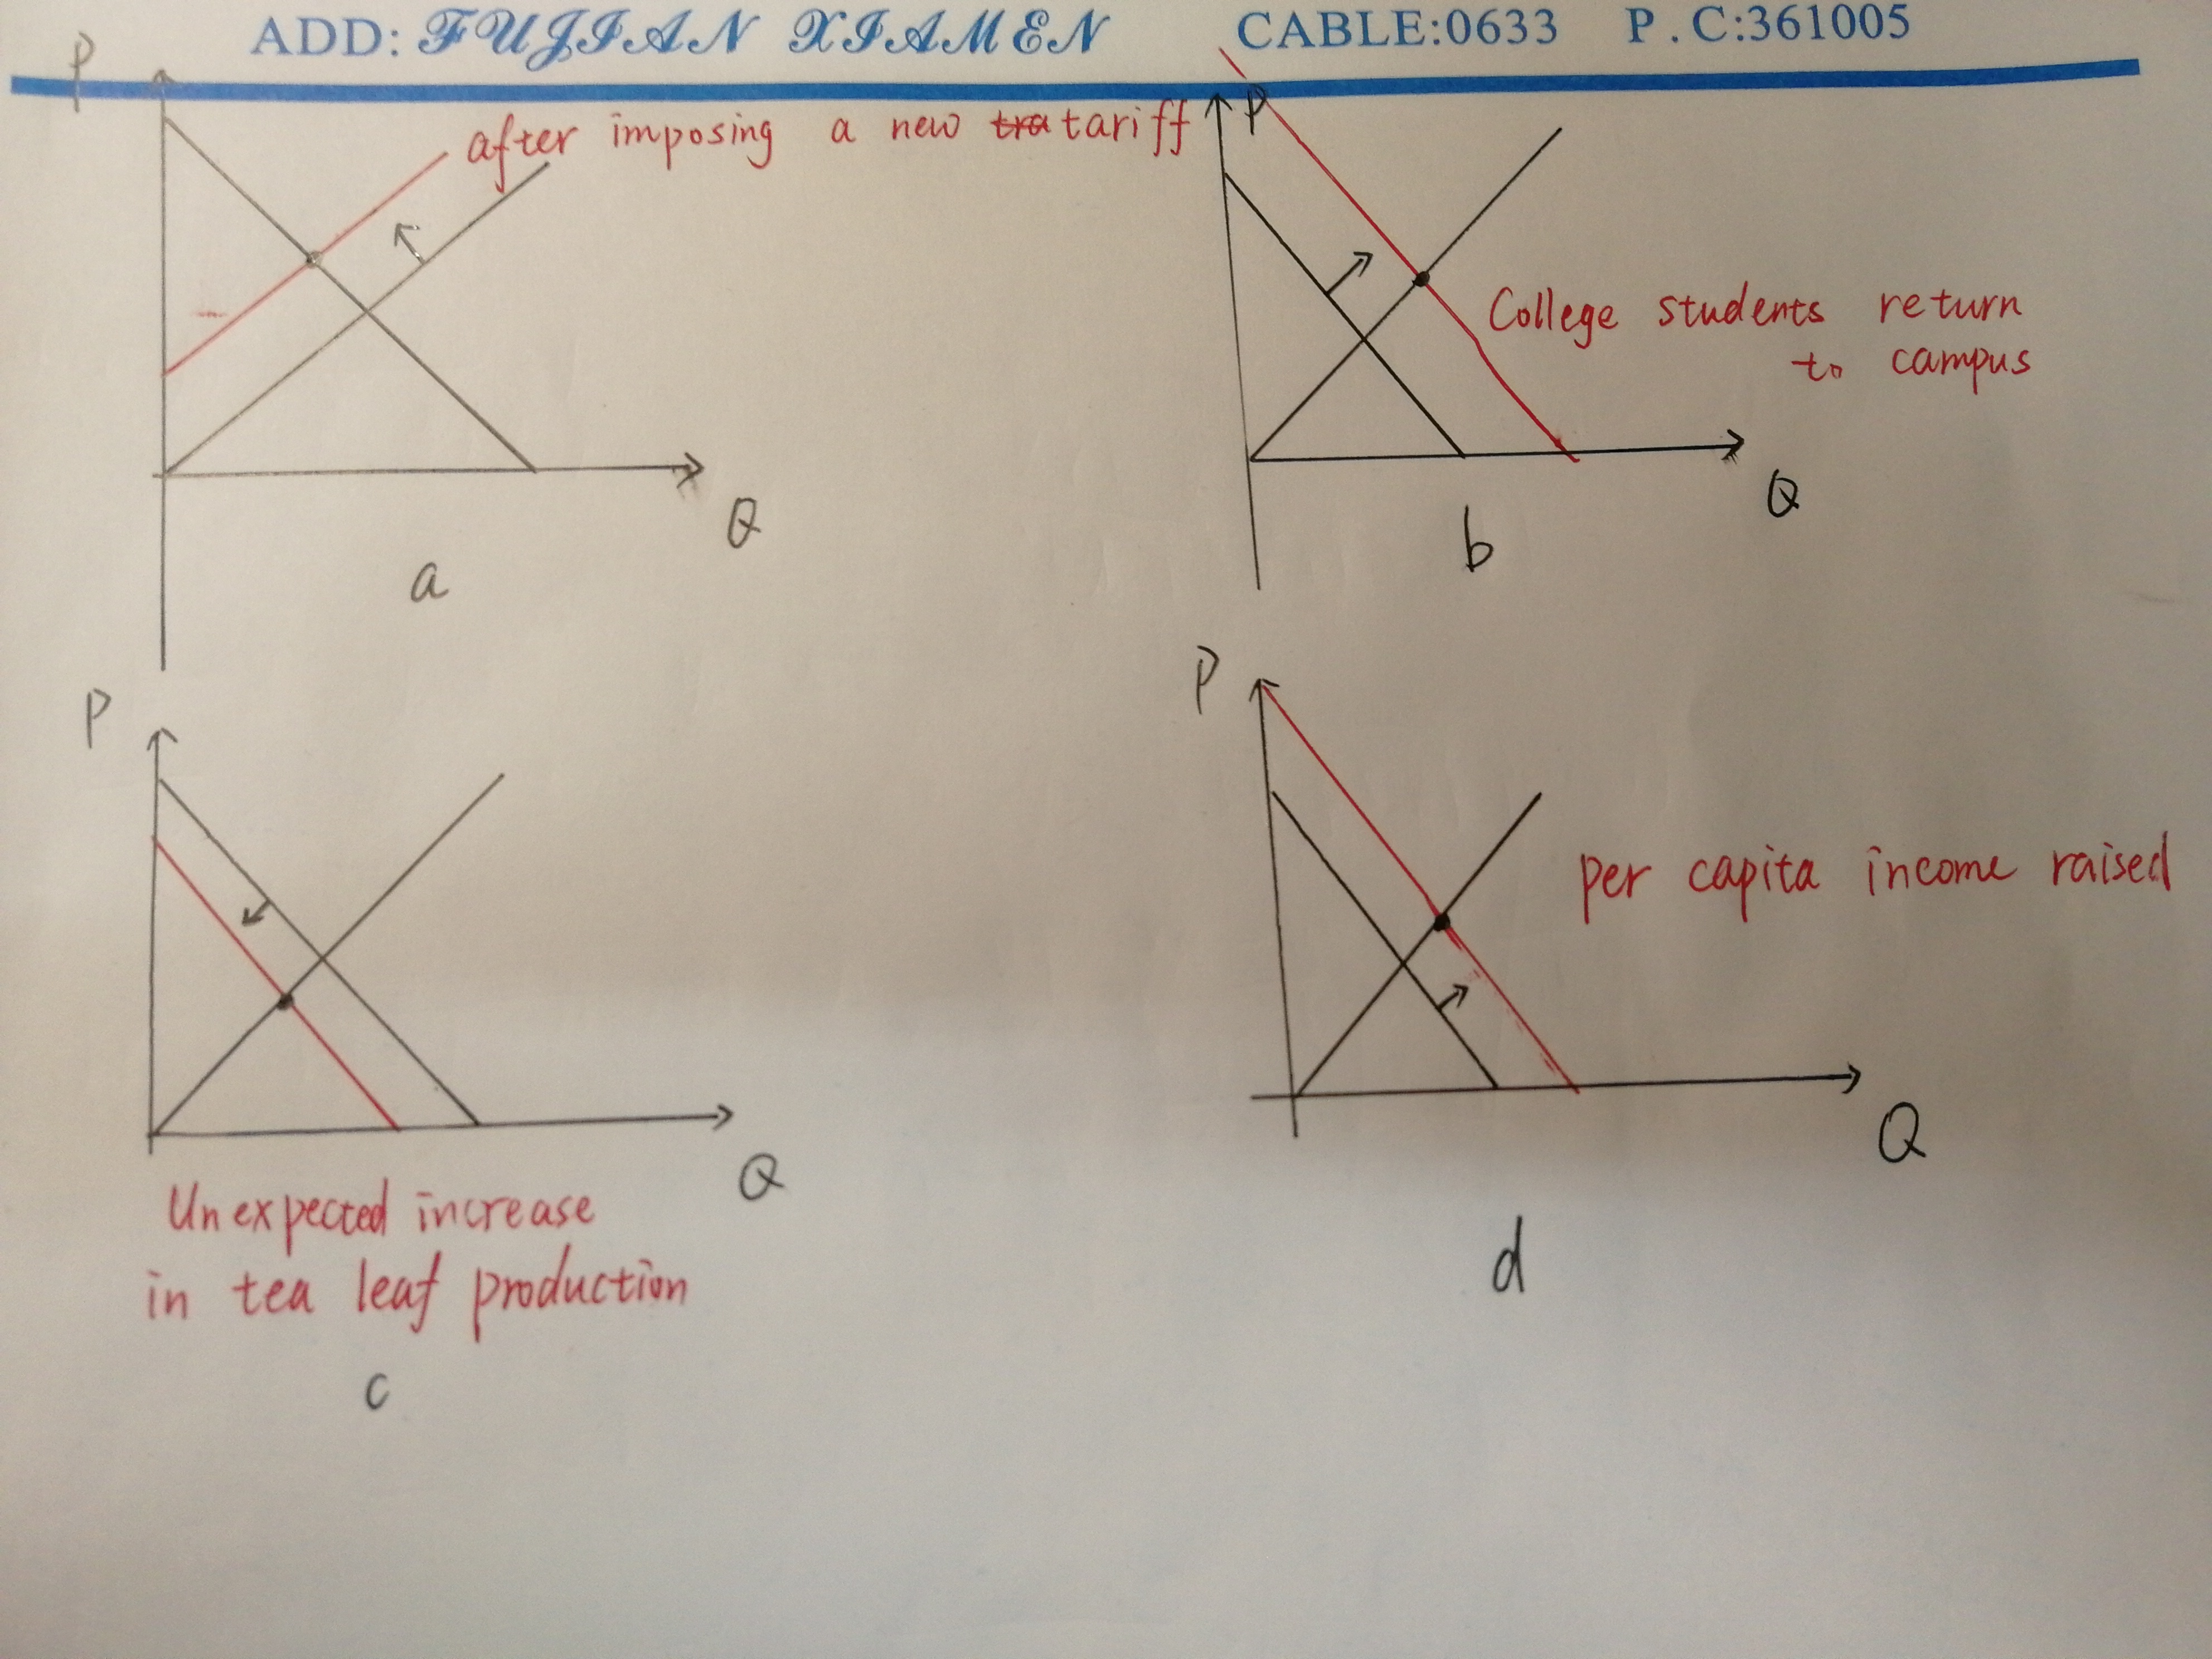 ADD: FUJIAN XIAMEN CABLE:0633 P.C:361005
P
after imposing a new tra tariff
Q
a
P
College students return
to campus
Q
b
P
Q
Unexpected increase
in tea leaf production
c
P
per capita income raised
Q
d